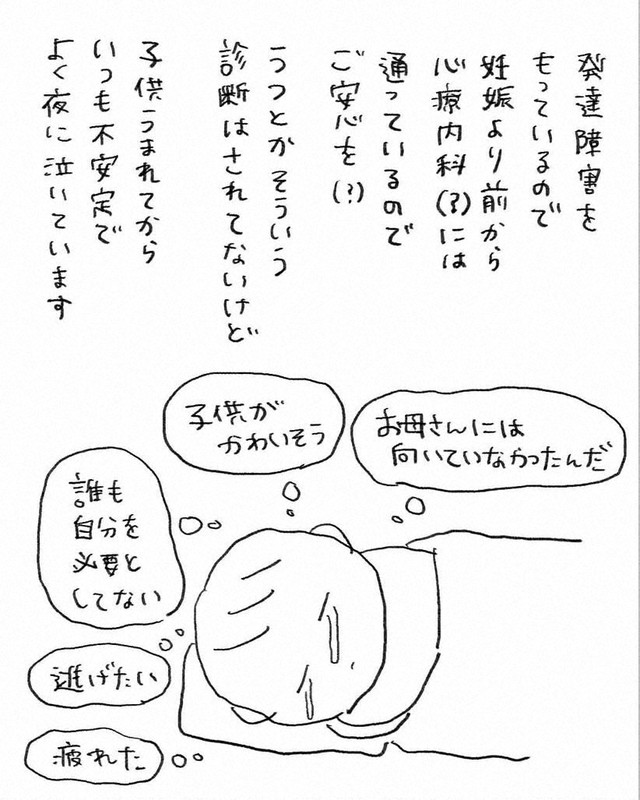 発達障害を
もっているので
妊娠より前から
心療内科(?)には
通っているので
ご安心を(?)
うつとかそういう
診断はされてないけど
子供うまれてから
いつも不安定で
よく夜に泣いています
お母さんには
向いていなかったんだ
子供が
かわいそう
誰も
自分を
必要と
してない
逃げたい
疲れた